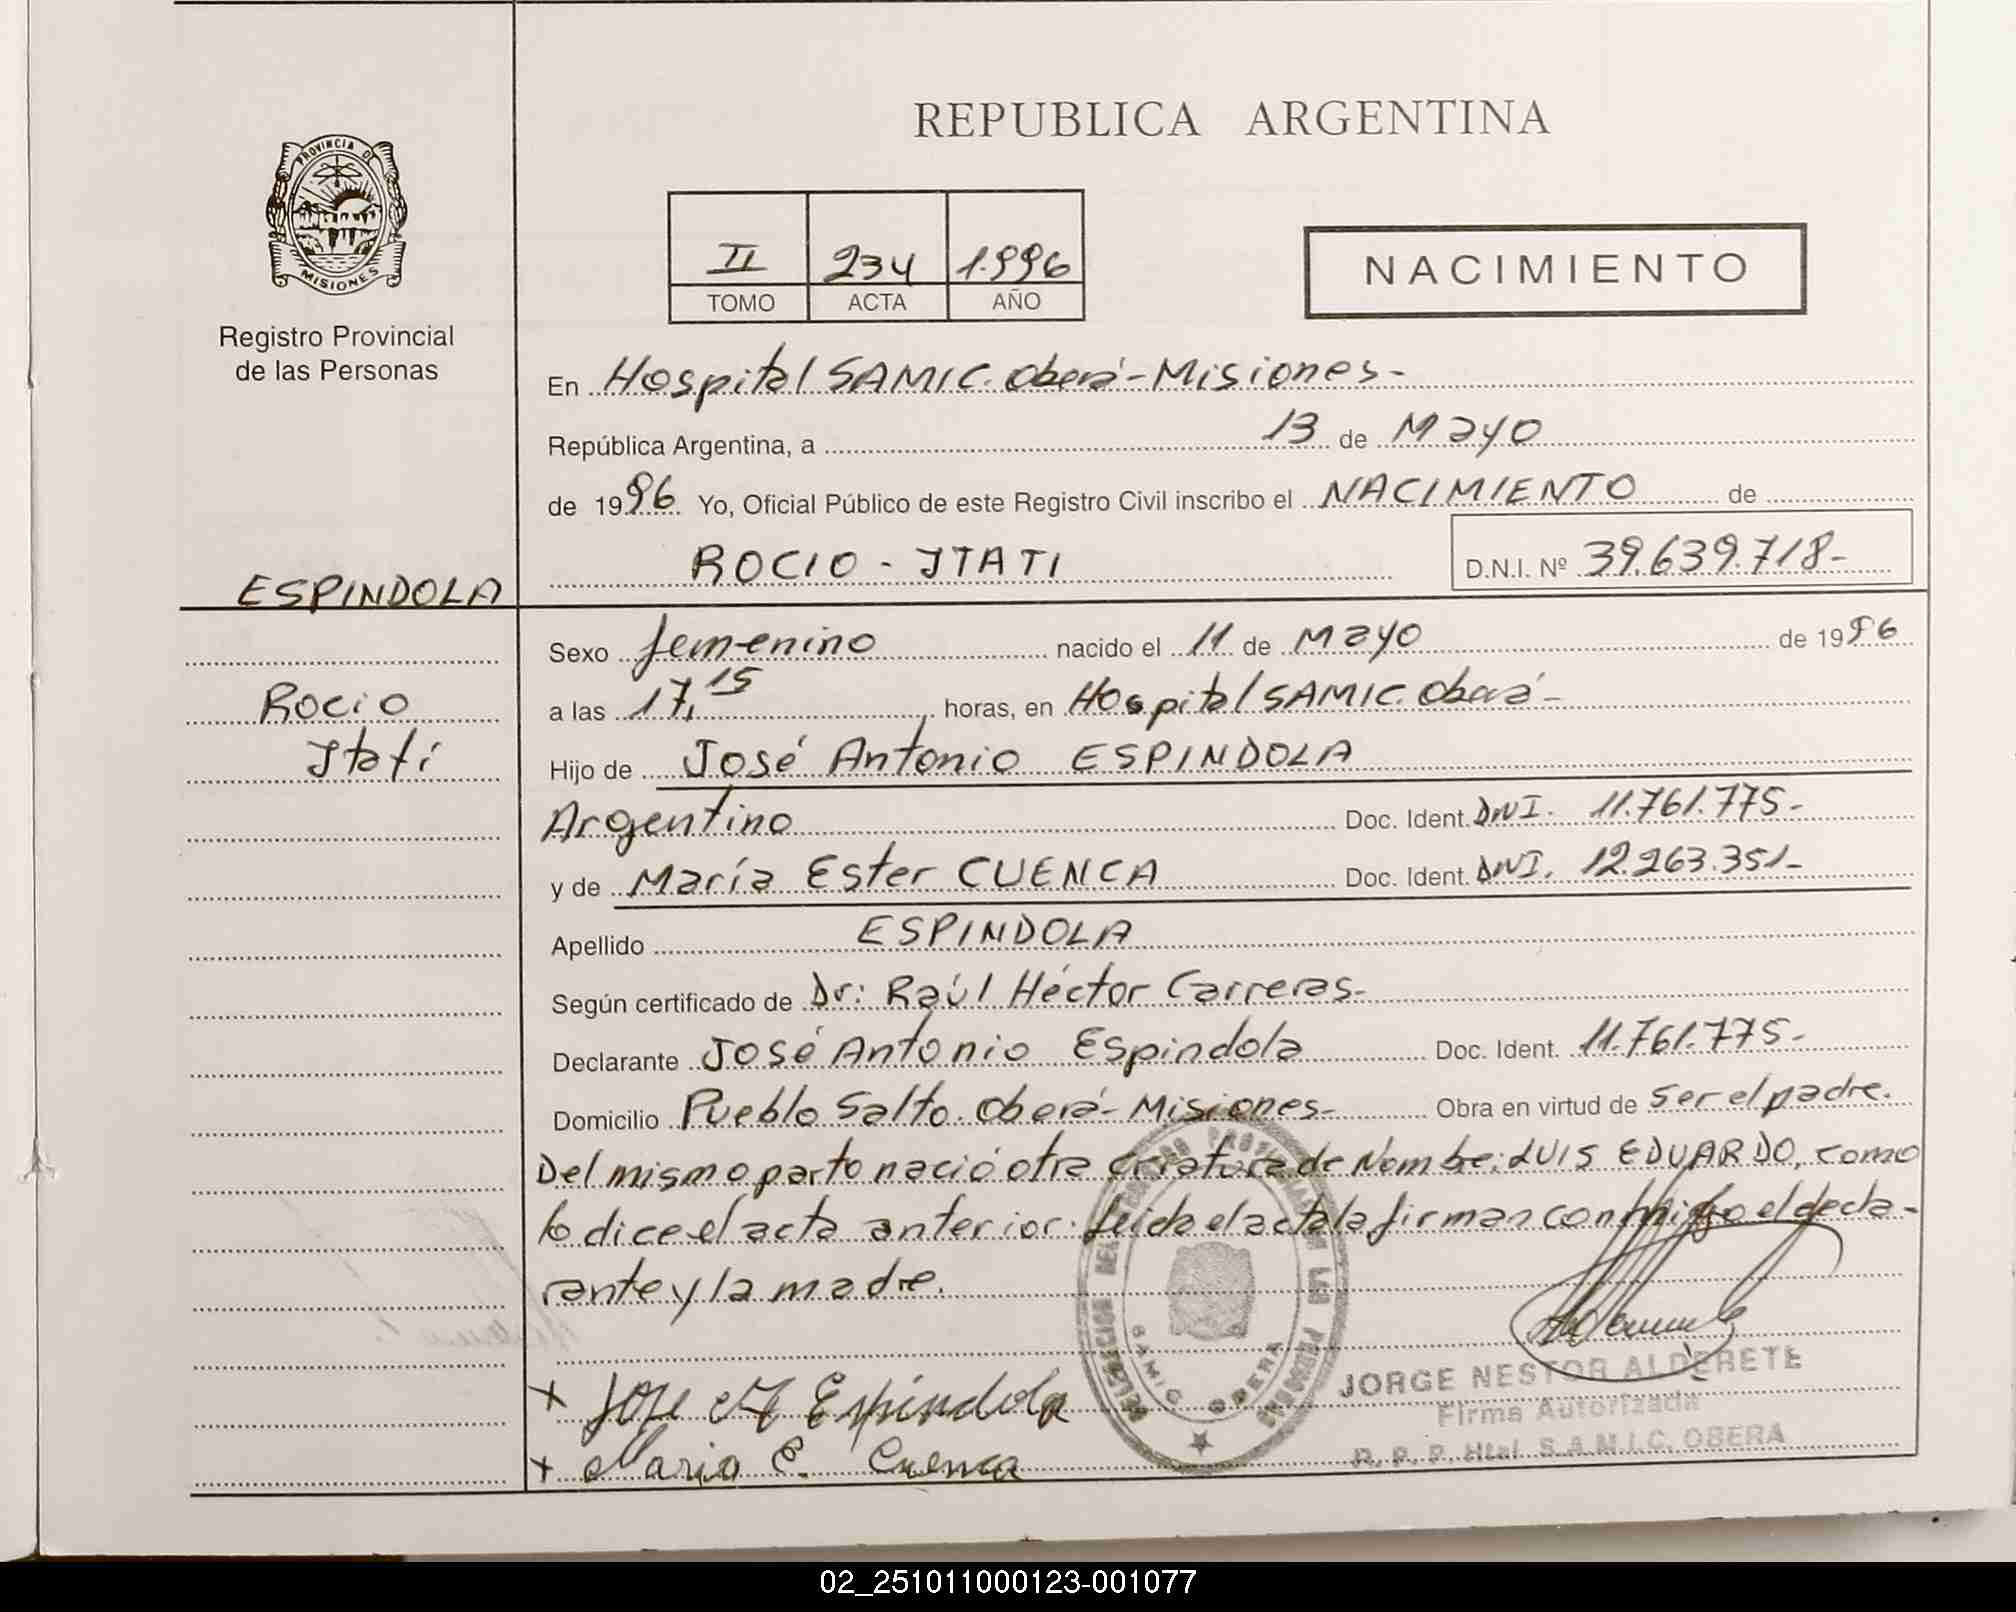 REPUBLICA ARGENTINA
PROVINCIA DE
MISIONES
Registro Provincial
de las Personas
II 234 1.996
TOMO ACTA AÑO
NACIMIENTO
En Hospital SAMIC. Oberá-Misiones-
República Argentina, a 13 de Mayo
de 1996 Yo, Oficial Público de este Registro Civil inscribo el NACIMIENTO de
ROCIO - ITATI D.N.I. Nº 39.639.718-
ESPINDOLA
Rocio
Itatí
Sexo femenino nacido el 11 de Mayo de 1996
a las 17,15 horas, en Hospital SAMIC. Oberá-
Hijo de José Antonio ESPINDOLA
Argentino Doc. Ident. DNI. 11.761.775-
y de María Ester CUENCA Doc. Ident. DNI. 12.263.351-
Apellido ESPINDOLA
Según certificado de Dr: Raúl Héctor Carreras-
Declarante José Antonio Espindola Doc. Ident. 11.761.775-
Domicilio Pueblo Salto. Oberá-Misiones- Obra en virtud de ser el padre.
Del mismo parto nació otra criatura de Nombre: LUIS EDUARDO, como
lo dice el acta anterior. Leida el acta la firman conmigo el decla-
rante y la madre.
x Jose A Espindola
x Maria E. Cuenca
SAMIC OBERA
JORGE NESTOR ALDERETE
Firma Autorizada
R. P. P. Htal. S.A.M.I.C. OBERA
02_251011000123-001077